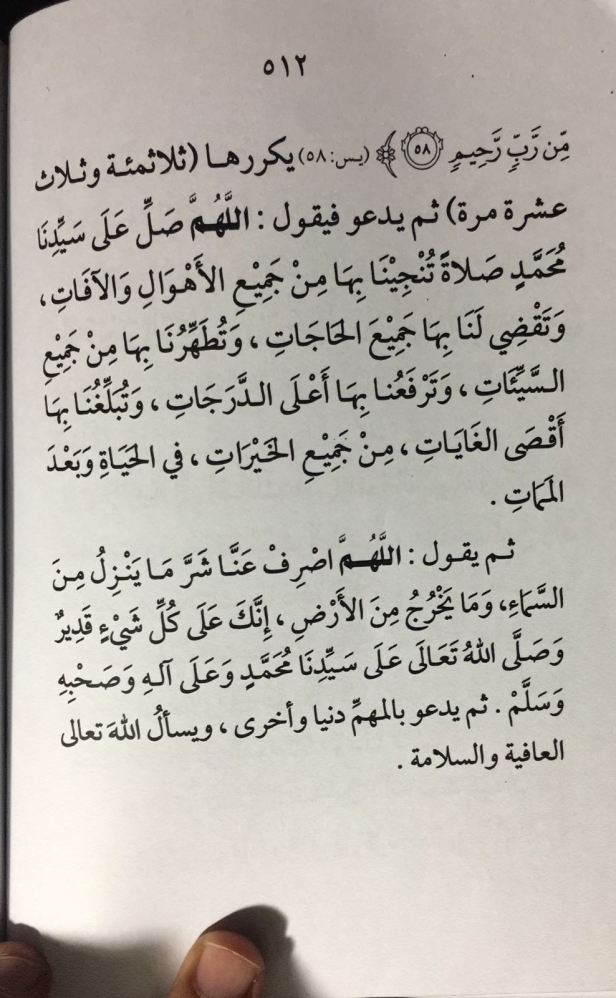 ٥١٢
مِّن رَّبٍّ رَّحِيمٍ ٥٨﴾ (يس: ٥٨) يكررها (ثلاثمئة وثلاث
عشرة مرة) ثم يدعو فيقول : اللَّهُمَّ صَلِّ عَلَى سَيِّدِنَا
مُحَمَّدٍ صَلاةً تُنْجِيْنَا بِهَا مِنْ جَمِيْعِ الأَهْوَالِ وَالآفَاتِ ،
وَتَقْضِي لَنَا بِهَا جَمِيْعَ الحَاجَاتِ ، وَتُطَهِّرُنَا بِهَا مِنْ جَمِيْعِ
السَّيِّئَاتِ ، وَتَرْفَعُنا بِهَا أَعْلَى الدَّرَجَاتِ ، وَتُبَلِّغُنَا بِهَا
أَقْصَى الغَايَاتِ ، مِنْ جَمِيْعِ الخَيْرَاتِ ، في الحَيَاةِ وَبَعْدَ
المَمَاتِ .
ثم يقول : اللَّهُمَّ اصْرِفْ عَنَّا شَرَّ مَا يَنْزِلُ مِنَ
السَّمَاءِ، وَمَا يَخْرُجُ مِنَ الأَرْضِ ، إِنَّكَ عَلَى كُلِّ شَيْءٍ قَدِيرٌ
وَصَلَّى اللهُ تَعَالَى عَلَى سَيِّدِنَا مُحَمَّدٍ وَعَلَى آلِهِ وَصَحْبِهِ
وَسَلَّمْ . ثم يدعو بالمهمِّ دنيا وأخرى ، ويسألُ اللهَ تعالى
العافية والسلامة .